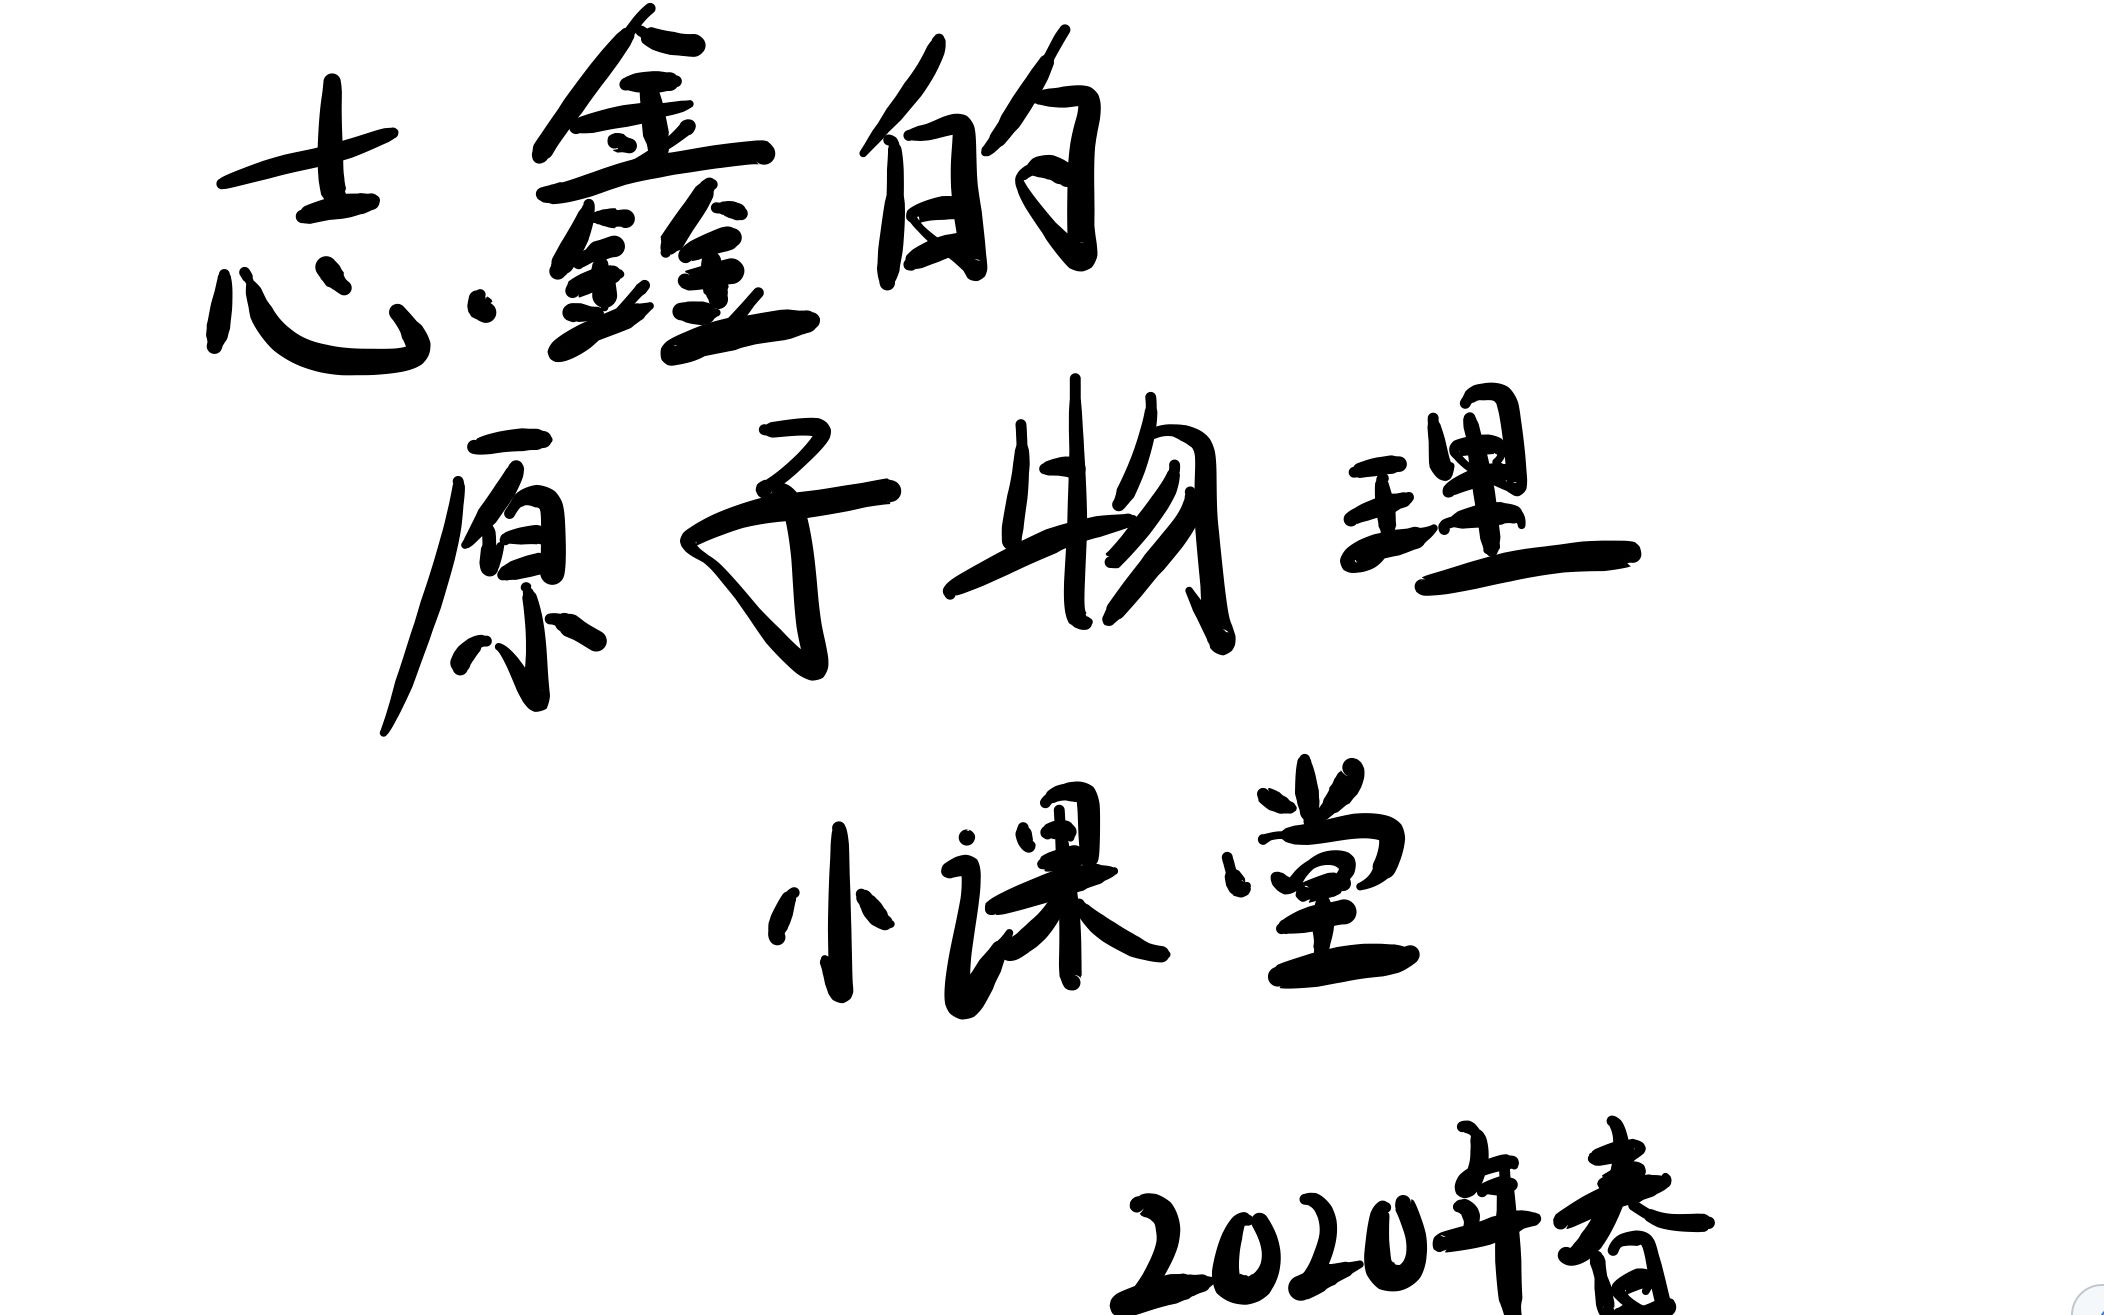 志鑫的
原子物理
小课堂
2020年春